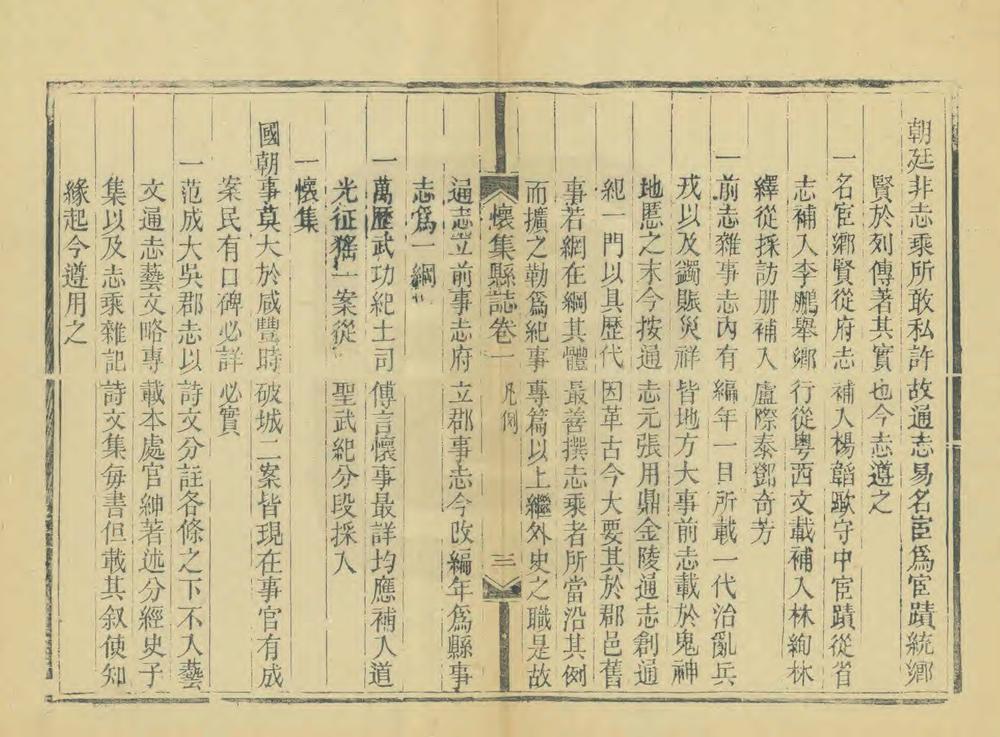 朝廷非志乘所敢私許故通志易名宦爲宦蹟統鄉
賢於列傳著其實也今志遵之
一名宦鄉賢從府志補入楊韜歐守中宦蹟從省
志補入李鵬舉鄉行從粵西文載補入林絢林
繹從採訪册補入盧際泰鄧奇芳
一前志雜事志內有編年一目所載一代治亂兵
戎以及蠲賑災祥皆地方大事前志載於鬼神
地慝之末今按通志元張用鼎金陵通志創通
紀一門以具歷代因革古今大要其於郡邑舊
事若網在綱其體最善撰志乘者所當沿其例
而擴之勒爲紀事專篇以上繼外史之職是故
懷集縣誌卷一 凡例 三
通志立前事志府立郡事志今改編年爲縣事
志爲一綱
一萬歷武功紀土司傳言懷事最詳均應補入道
光征猺一案從聖武紀分段採入
一懷集
國朝事莫大於咸豐時破城二案皆現在事官有成
案民有口碑必詳必實
一范成大吳郡志以詩文分註各條之下不入藝
文通志藝文略專載本處官紳著述分經史子
集以及志乘雜記詩文集每書但載其叙使知
緣起今遵用之